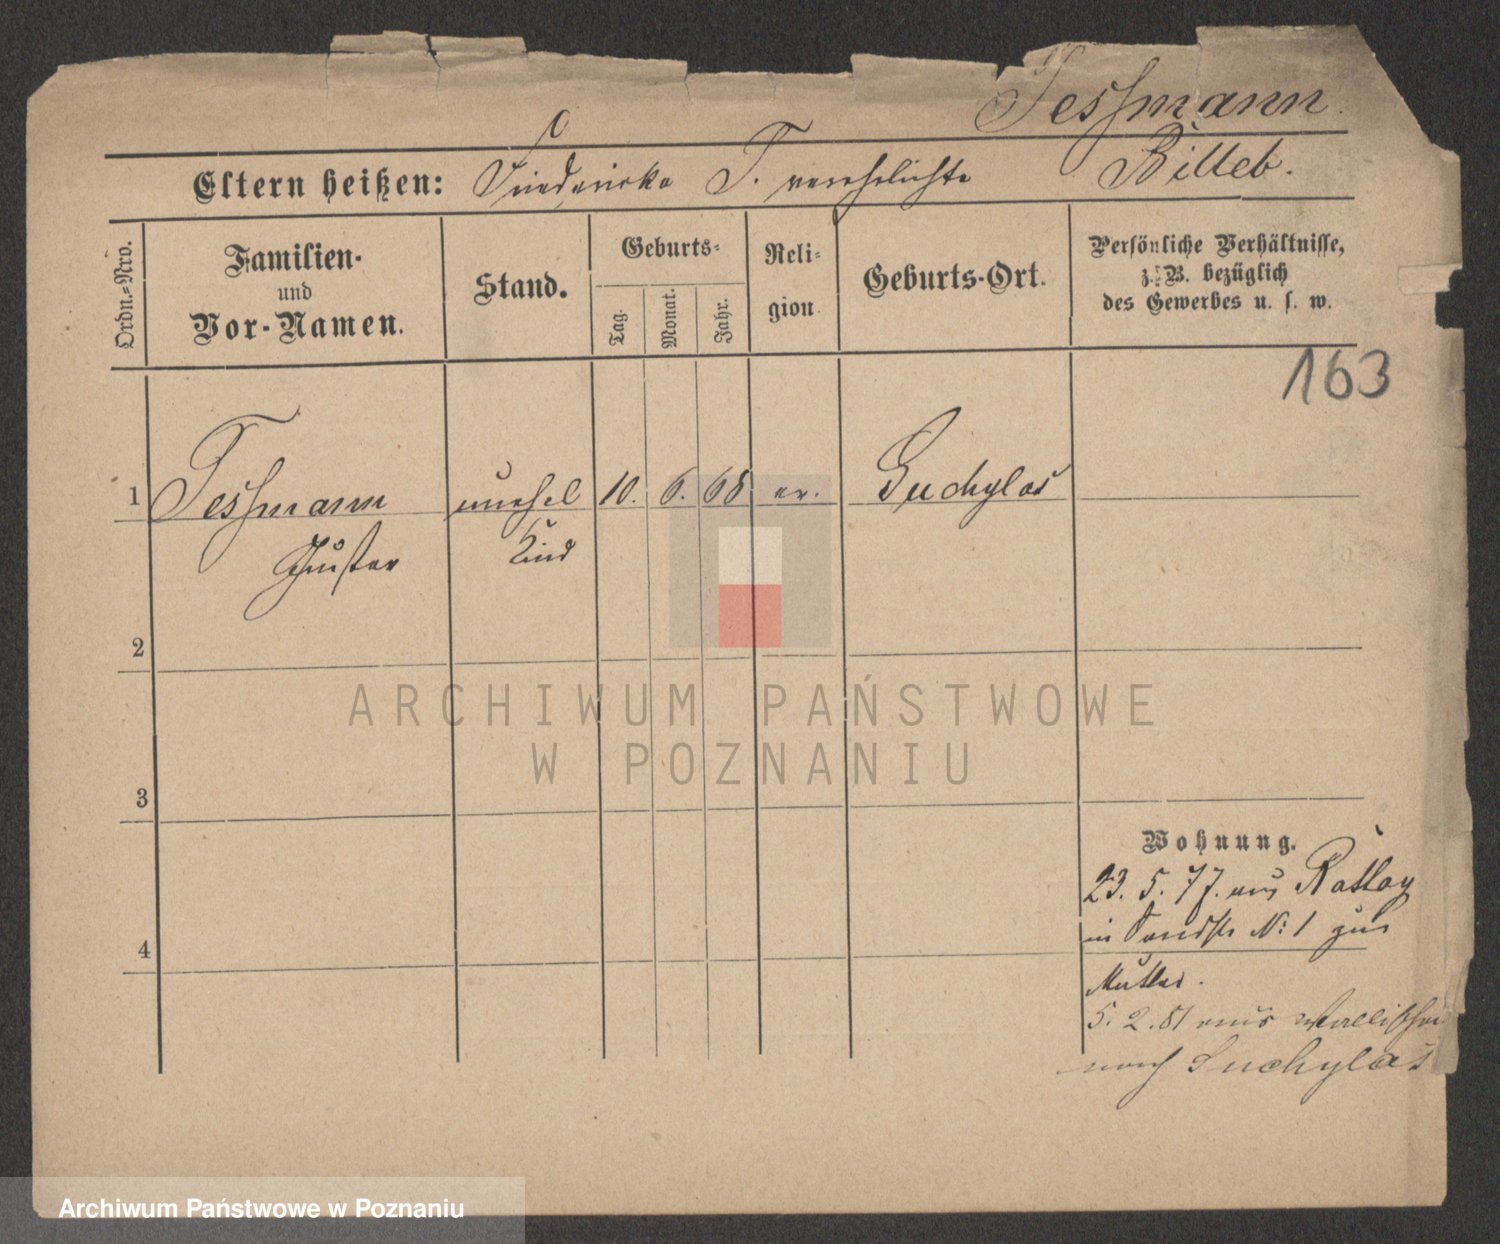 Tessmann
Eltern heißen: Friederike T. verehelichte Billeb.
Ordn.-Nro.
Familien-
und
Vor-Namen.
Stand.
Geburts-
Tag.
Monat.
Jahr.
Reli-
gion
Geburts-Ort.
Persönliche Verhältnisse,
z. B. bezüglich
des Gewerbes u. s. w.
163
1 Tessmann unehel 10. 6. 68 ev. Suchylas
Gustav Kind
2
3
Wohnung.
23. 5. 77. aus Rattay
in N: 1 zur
4
Mutter.
5. 2. 81 aus Wallischei
nach Suchylas
ARCHIWUM PAŃSTWOWE
W POZNANIU
Archiwum Państwowe w Poznaniu